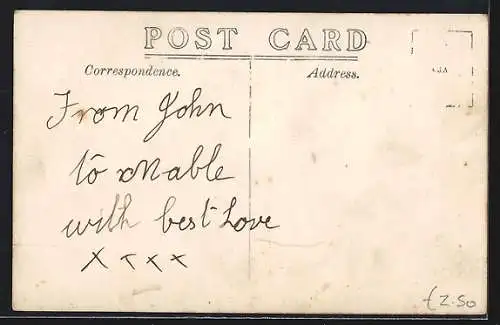 POST CARD
Correspondence.
Address.
From John
to Mable
with best Love
x x x x
£2.50